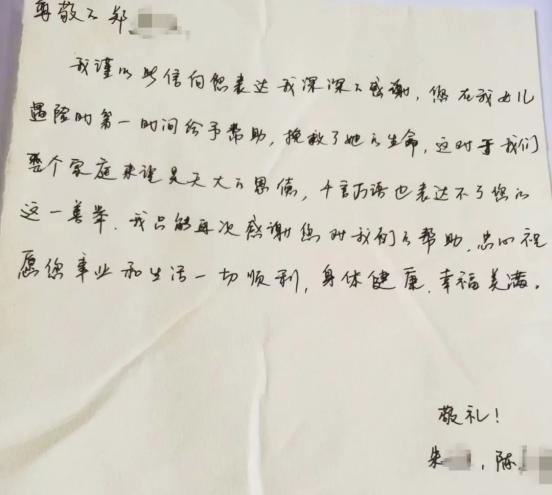 尊敬的郑
我谨以此信向您表达我深深的感谢，您在我女儿
遇险时第一时间给予帮助，挽救了她的生命，这对于我们
整个家庭来说是天大的恩德，千言万语也表达不了您的
这一善举，我只能再次感谢您对我们的帮助，忠心祝
愿您事业和生活一切顺利，身体健康，幸福美满。
敬礼！
朱　，陈